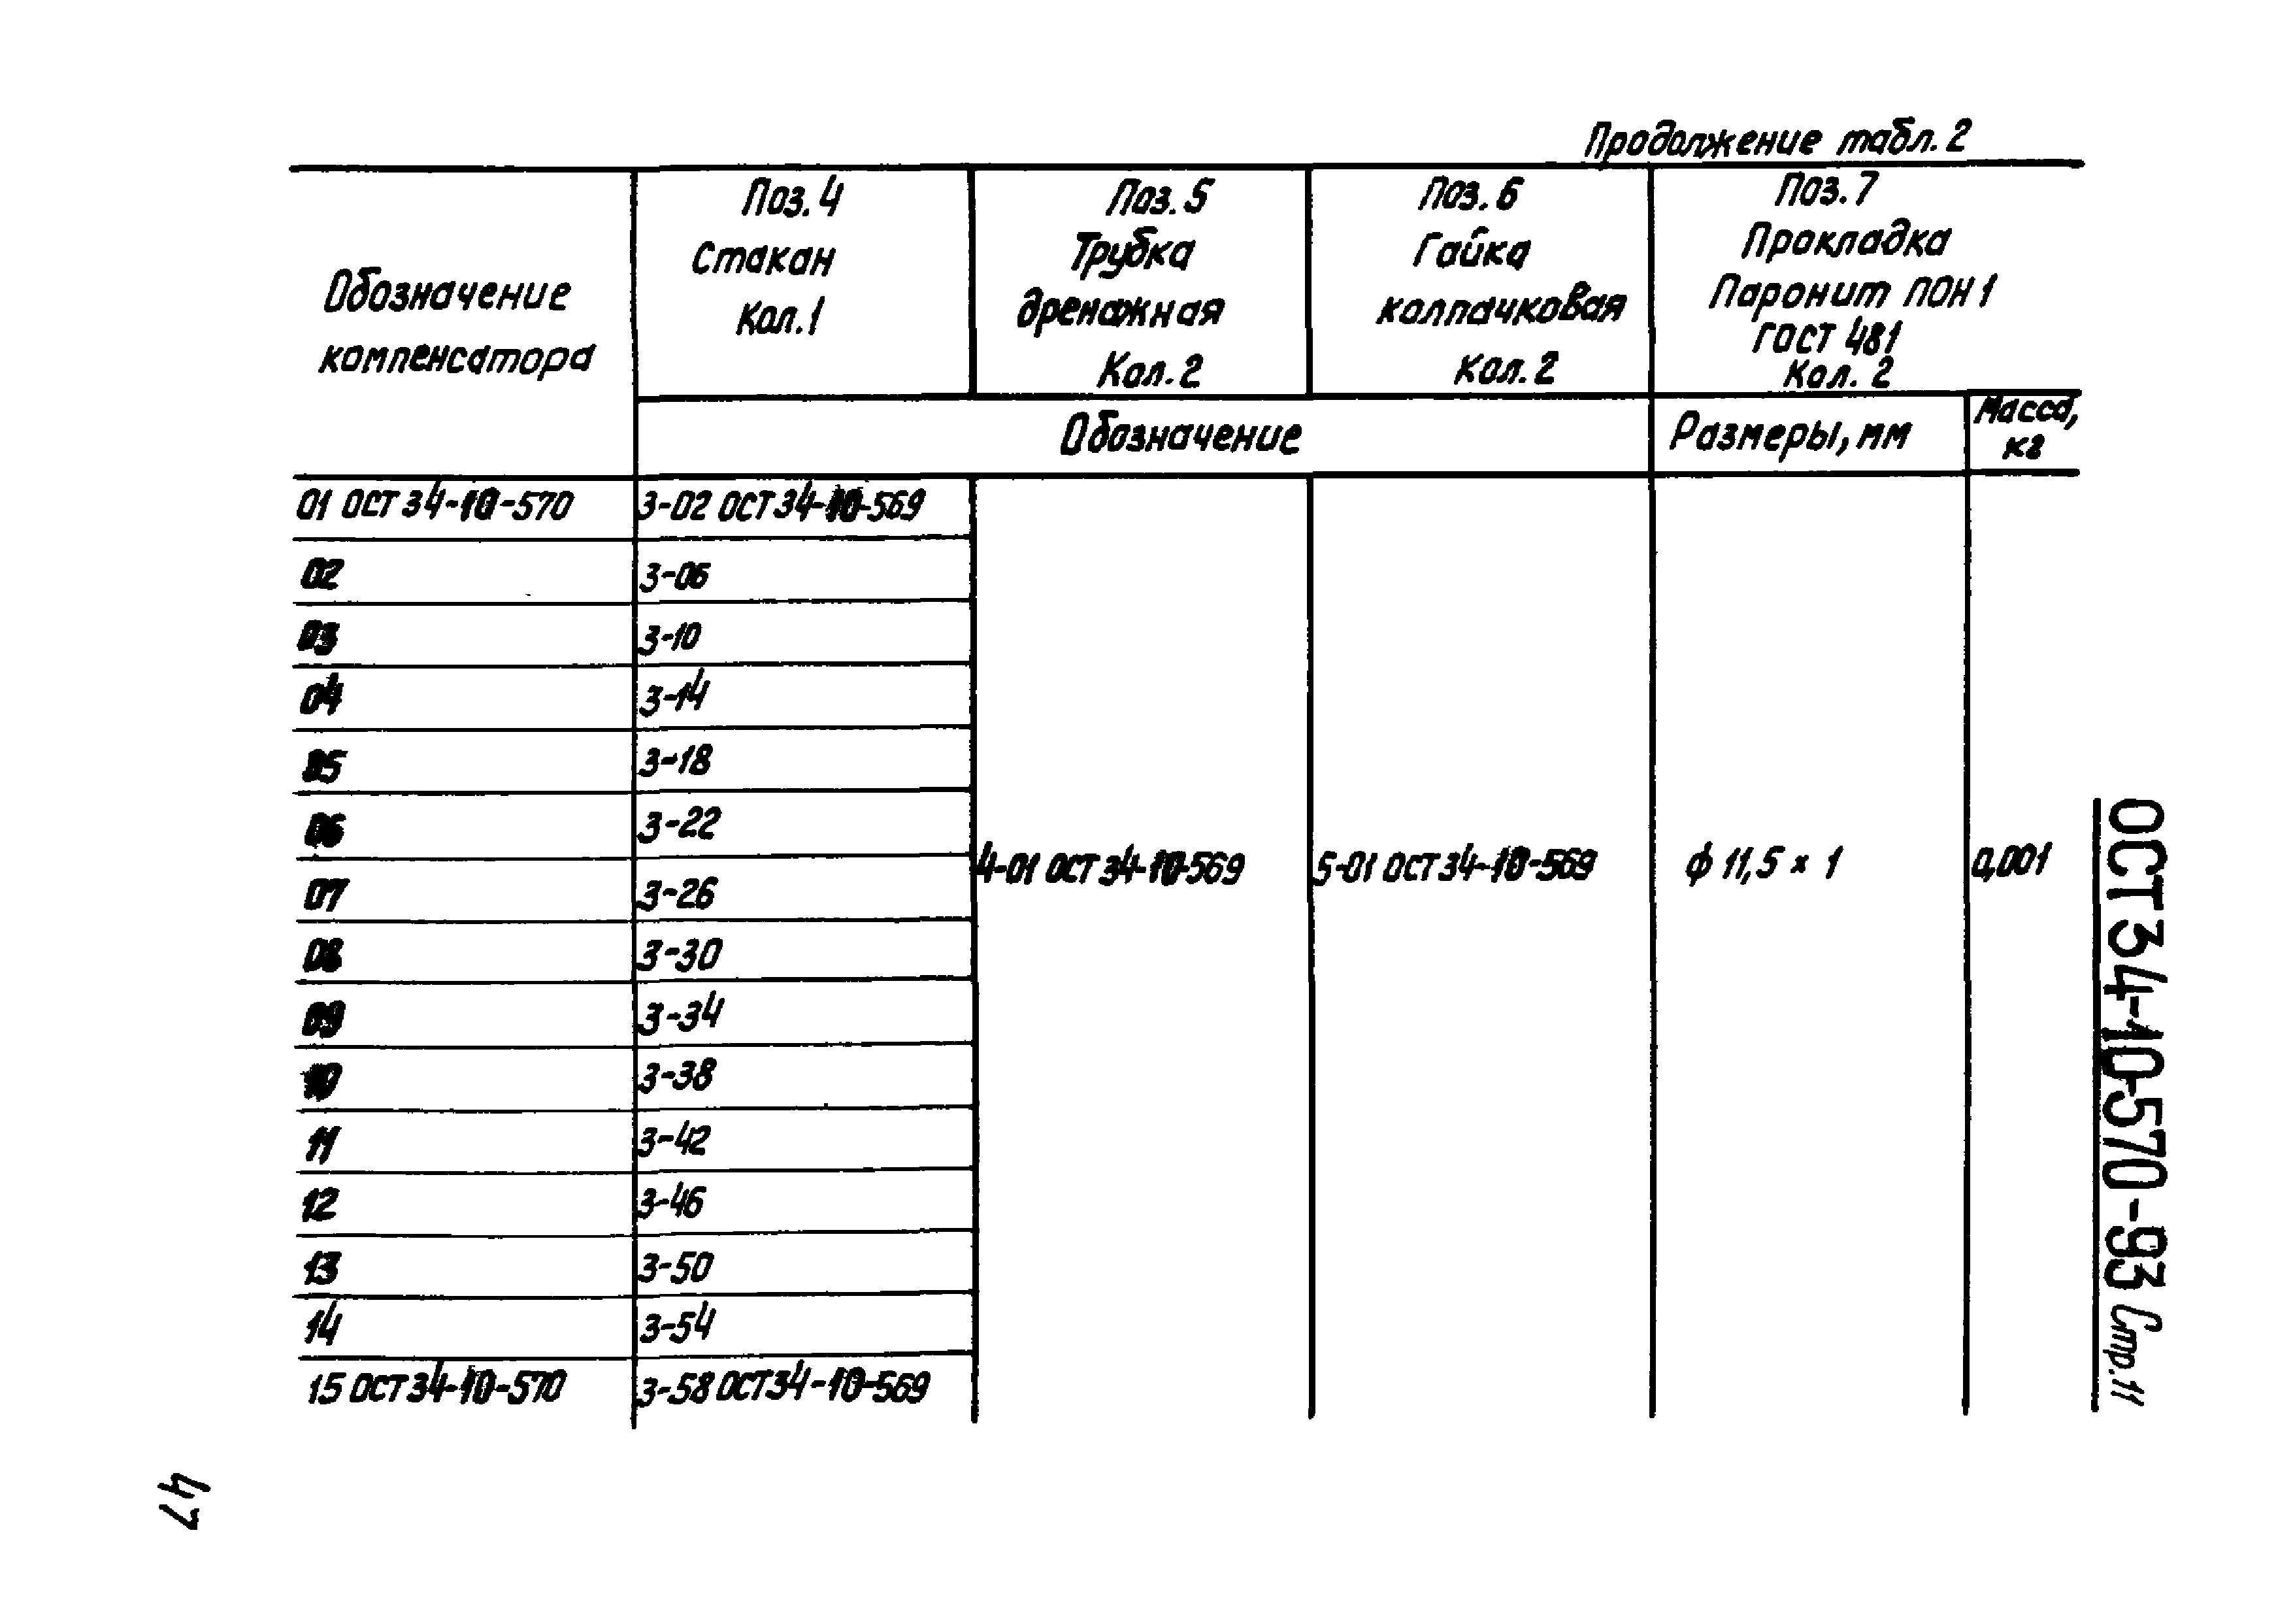 Продолжение табл. 2
Обозначение
компенсатора
Поз. 4
Стакан
Кол. 1
Поз. 5
Трубка
дренажная
Кол. 2
Поз. 6
Гайка
колпачковая
Кол. 2
Поз. 7
Прокладка
Паронит ПОН 1
ГОСТ 481
Кол. 2
Обозначение
Размеры, мм
Масса,
кг
01 ОСТ 34-10-570
3-02 ОСТ 34-10-569
02
3-06
03
3-10
04
3-14
05
3-18
06
3-22
07
3-26
08
3-30
09
3-34
10
3-38
11
3-42
12
3-46
13
3-50
14
3-54
15 ОСТ 34-10-570
3-58 ОСТ 34-10-569
4-01 ОСТ 34-10-569
5-01 ОСТ 34-10-569
ф 11,5 × 1
0,001
ОСТ 34-10-570-93 Стр. 11
47